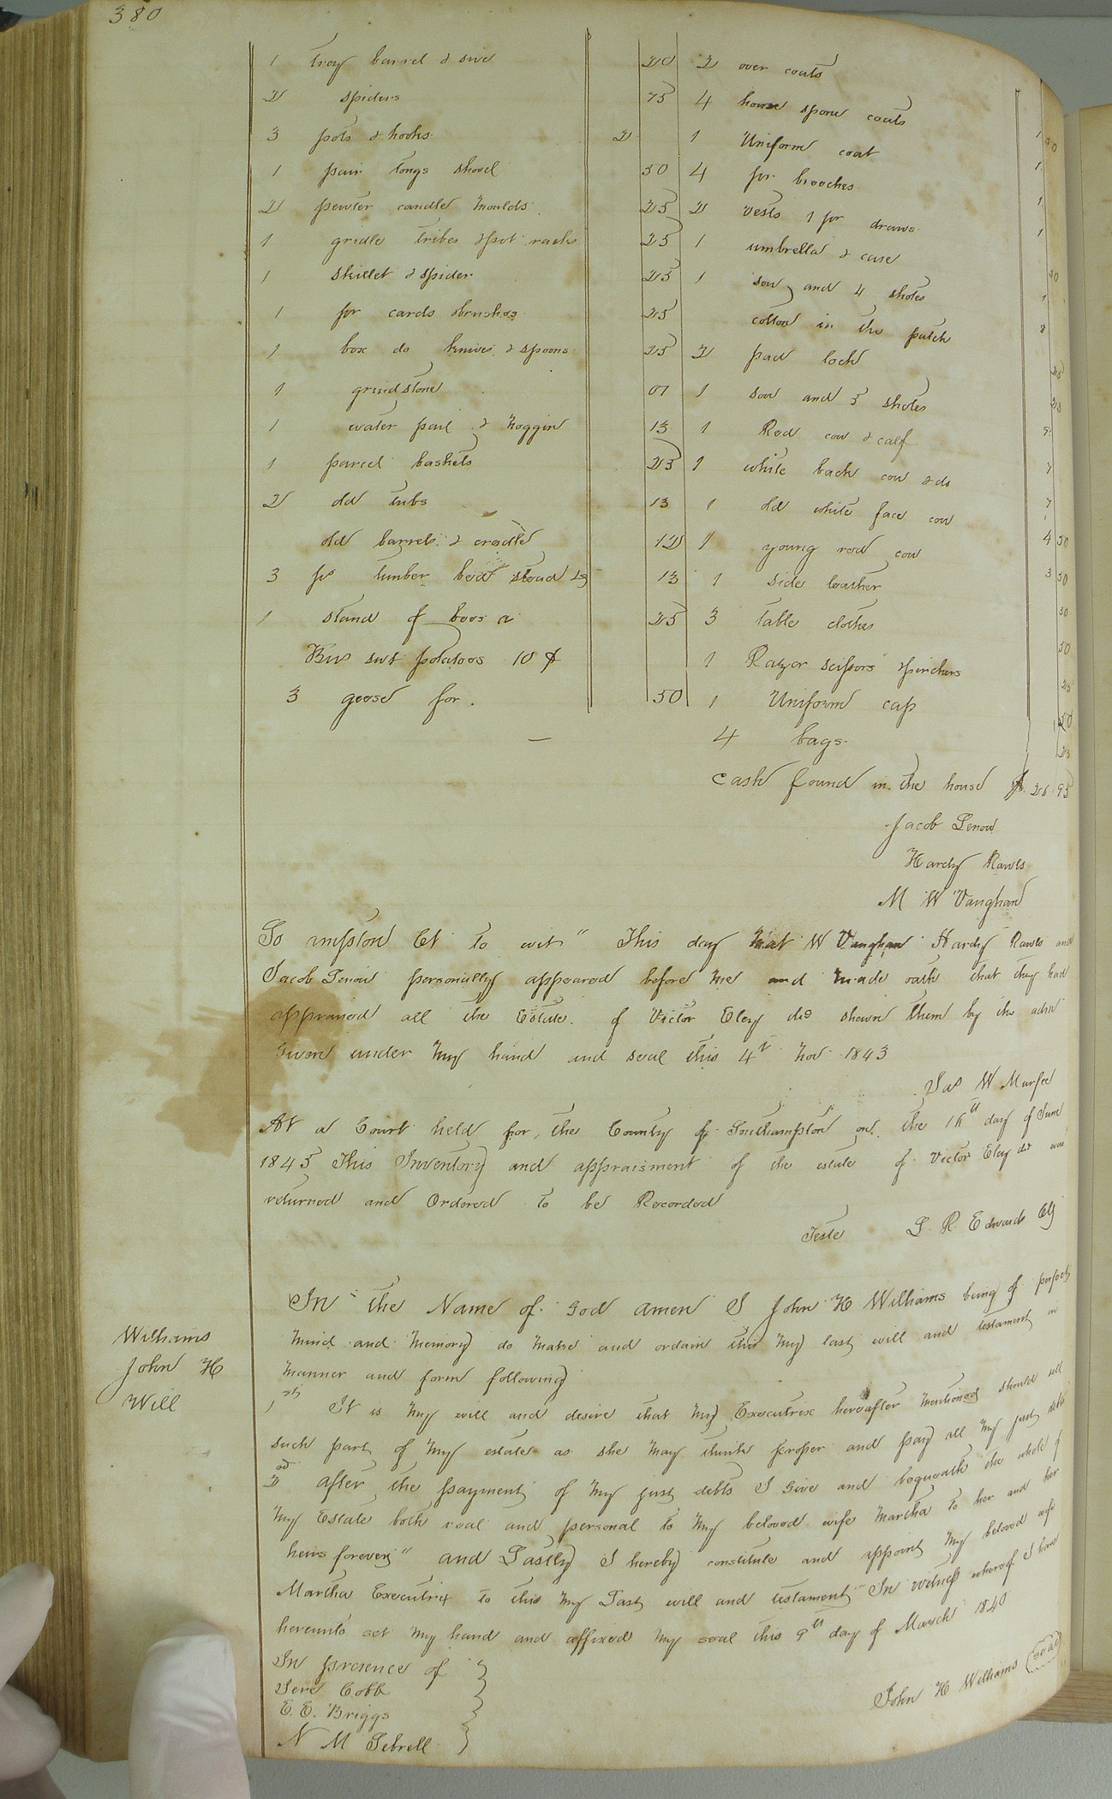 380
1 tray barrel & sive 20
2 spiders 75
3 pots & hooks 2
1 pair tongs shovel 50
2 pewter candle moulds 25
1 gridle & pot racks 25
1 skillet & spider 25
1 pr cards & brushes 25
1 box do knives & spoons 25
1 grindstone 01
1 water pail & noggin 13
1 parcel baskets 25
2 old tubs 13
old barrels & cradle 12
3 ps timber bed stead 13
1 stand of bees 25
Bus swt potatoes 10
3 geese for 50
2 over coats
4 home spone coats
1 Uniform coat
4 pr breeches
2 vests 1 pr draws
1 umbrella & case
1 sow and 4 shotes
cotton in the patch
2 pad lock
1 sow and 5 shotes
1 Red cow & calf
1 white back cow & do
1 old white face cow
1 young red cow 4 50
1 side leather 3 50
3 table clothes 50
1 Razor scissors & pinchers
1 Uniform cap
4 bags
Cash found in the house $ 26 95
Jacob Lenow
Hardy Rawls
M W Vaughan
So mpston Ct to wit" This day W Vaughan Hardy Rawls and
Jacob Lenow personally appeared before me and made oath that they had
appraised all the Estate of Victor Eley decd shown them by the admr
Given under my hand and seal this 4th Nov 1843
Jas W Murfee
At a Court held for the County of Southampton on the 16th day of June
1845 This Inventory and appraisment of the estate of Victor Eley decd was
returned and Ordered to be Recorded
Teste L R Edwards Clk
Williams
John H
Will
In the Name of God amen I John H Williams being of perfect
mind and memory do make and ordain this my last will and testament in
manner and form following
1st It is my will and desire that my Executrix hereafter mentioned should sell
such part of my estate as she may think proper and pay all my just debts
2nd after the payment of my just debts I Give and bequeath the whole of
my Estate both real and personal to my beloved wife Martha to her and her
heirs forever" and Lastly I hereby constitute and appoint my beloved wife
Martha Executrix to this my Last will and testament In witness whereof I have
hereunto set my hand and affixed my seal this 9th day of March 1840
John H Williams (seal)
In presence of
Jere Cobb
E. E. Briggs
N M Sebrell